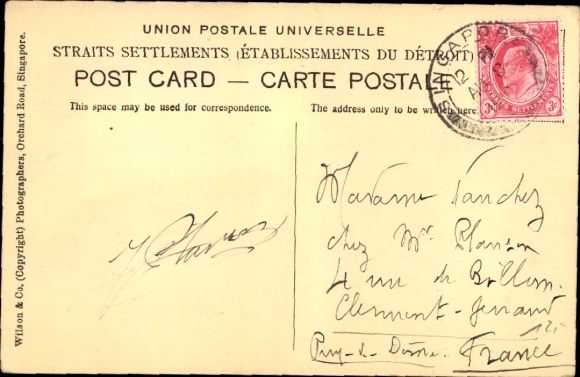 UNION POSTALE UNIVERSELLE
STRAITS SETTLEMENTS (ÉTABLISSEMENTS DU DÉTROIT)
POST CARD — CARTE POSTALE
This space may be used for correspondence.
The address only to be written here.
Wilson & Co., (Copyright) Photographers, Orchard Road, Singapore.
SINGAPORE
STRAITS SETTLEMENTS
3c 3c
Madame Sanchez
chez Mr Planson
4 rue de Billom
Clermont-Ferrand
Puy-de-Dôme France